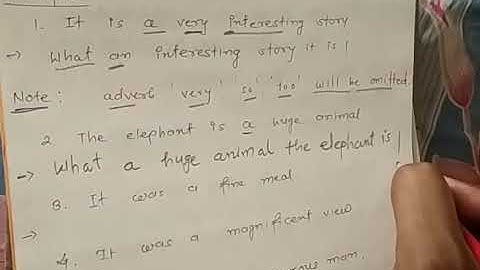 1. It is a very interesting story
→ What an interesting story it is!
Note: adverb 'very' 'so' 'too' will be omitted.
2 The elephant is a huge animal
→ What a huge animal the elephant is!
3. It was a fine meal
→
4. It was a magnificent view
man.